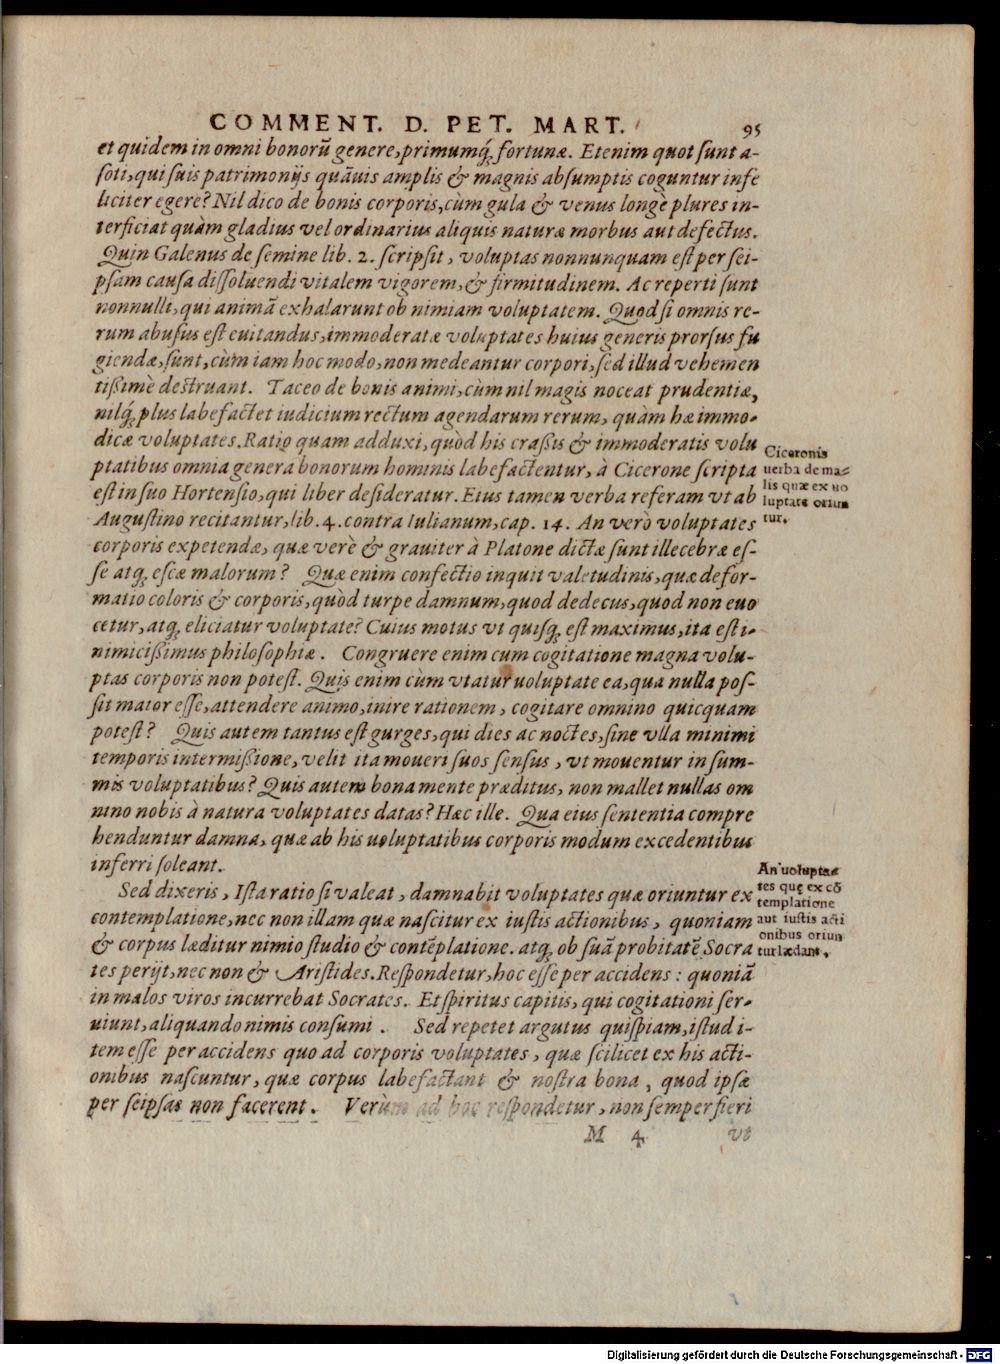 COMMENT. D. PET. MART. 95
et quidem in omni bonorū genere, primumq́; fortunæ. Etenim quot sunt a-
soti, qui suis patrimonijs quāuis amplis & magnis absumptis coguntur infe
liciter egere? Nil dico de bonis corporis, cùm gula & venus longè plures in-
terficiat quàm gladius vel ordinarius aliquis naturæ morbus aut defectus.
Quin Galenus de semine lib. 2. scripsit, voluptas nonnunquam est per sei-
psam causa dissoluendi vitalem vigorem, & firmitudinem. Ac reperti sunt
nonnulli, qui animā exhalarunt ob nimiam voluptatem. Quod si omnis re-
rum abusus est euitandus, immoderatæ voluptates huius generis prorsus fu
giendæ, sunt, cùm iam hoc modo, non medeantur corpori, sed illud vehemen
tißimè destruant. Taceo de bonis animi, cùm nil magis noceat prudentiæ,
nilq́; plus labefactet iudicium rectum agendarum rerum, quàm hæ immo-
dicæ voluptates. Ratio quam adduxi, quòd his craßis & immoderatis volu
ptatibus omnia genera bonorum hominis labefactentur, à Cicerone scripta
est in suo Hortensio, qui liber desideratur. Eius tamen verba referam vt ab
Augustino recitantur, lib. 4. contra Iulianum, cap. 14. An verò voluptates
corporis expetendæ, quæ verè & grauiter à Platone dictæ sunt illecebræ es-
se atq; escæ malorum? Quæ enim confectio inquit valetudinis, quæ defor-
matio coloris & corporis, quòd turpe damnum, quod dedecus, quod non euo
cetur, atq; eliciatur voluptate? Cuius motus vt quisq; est maximus, ita est i-
nimicißimus philosophiæ. Congruere enim cum cogitatione magna volu-
ptas corporis non potest. Quis enim cùm vtatur uoluptate ea, qua nulla pos-
sit maior esse, attendere animo, inire rationem, cogitare omnino quicquam
potest? Quis autem tantus est gurges, qui dies ac noctes, sine vlla minimi
temporis intermißione, velit ita moueri suos sensus, vt mouentur in sum-
mis voluptatibus? Quis autem bona mente præditus, non mallet nullas om
nino nobis à natura voluptates datas? Hæc ille. Qua eius sententia compre
henduntur damna, quæ ab his uoluptatibus corporis modum excedentibus
inferri soleant.
Ciceronis
uerba de ma-
lis quæ ex uo
luptate oriun
tur.
Sed dixeris, Ista ratio si valeat, damnabit voluptates quæ oriuntur ex
contemplatione, nec non illam quæ nascitur ex iustis actionibus, quoniam
& corpus læditur nimio studio & contēplatione. atq; ob suā probitatē Socra
tes perijt, nec non & Aristides. Respondetur, hoc esse per accidens: quoniā
in malos viros incurrebat Socrates. Et spiritus capitis, qui cogitationi ser-
uiunt, aliquando nimis consumi. Sed repetet argutus quispiam, istud i-
tem esse per accidens quo ad corporis voluptates, quæ scilicet ex his acti-
onibus nascuntur, quæ corpus labefactant & nostra bona, quod ipsæ
per seipsas non facerent. Verùm ad hoc respondetur, non semper fieri
An uolupta-
tes quę ex cō
templatione
aut iustis acti
onibus oriun
tur lædant.
M 4 vt
Digitalisierung gefördert durch die Deutsche Forschungsgemeinschaft - DFG